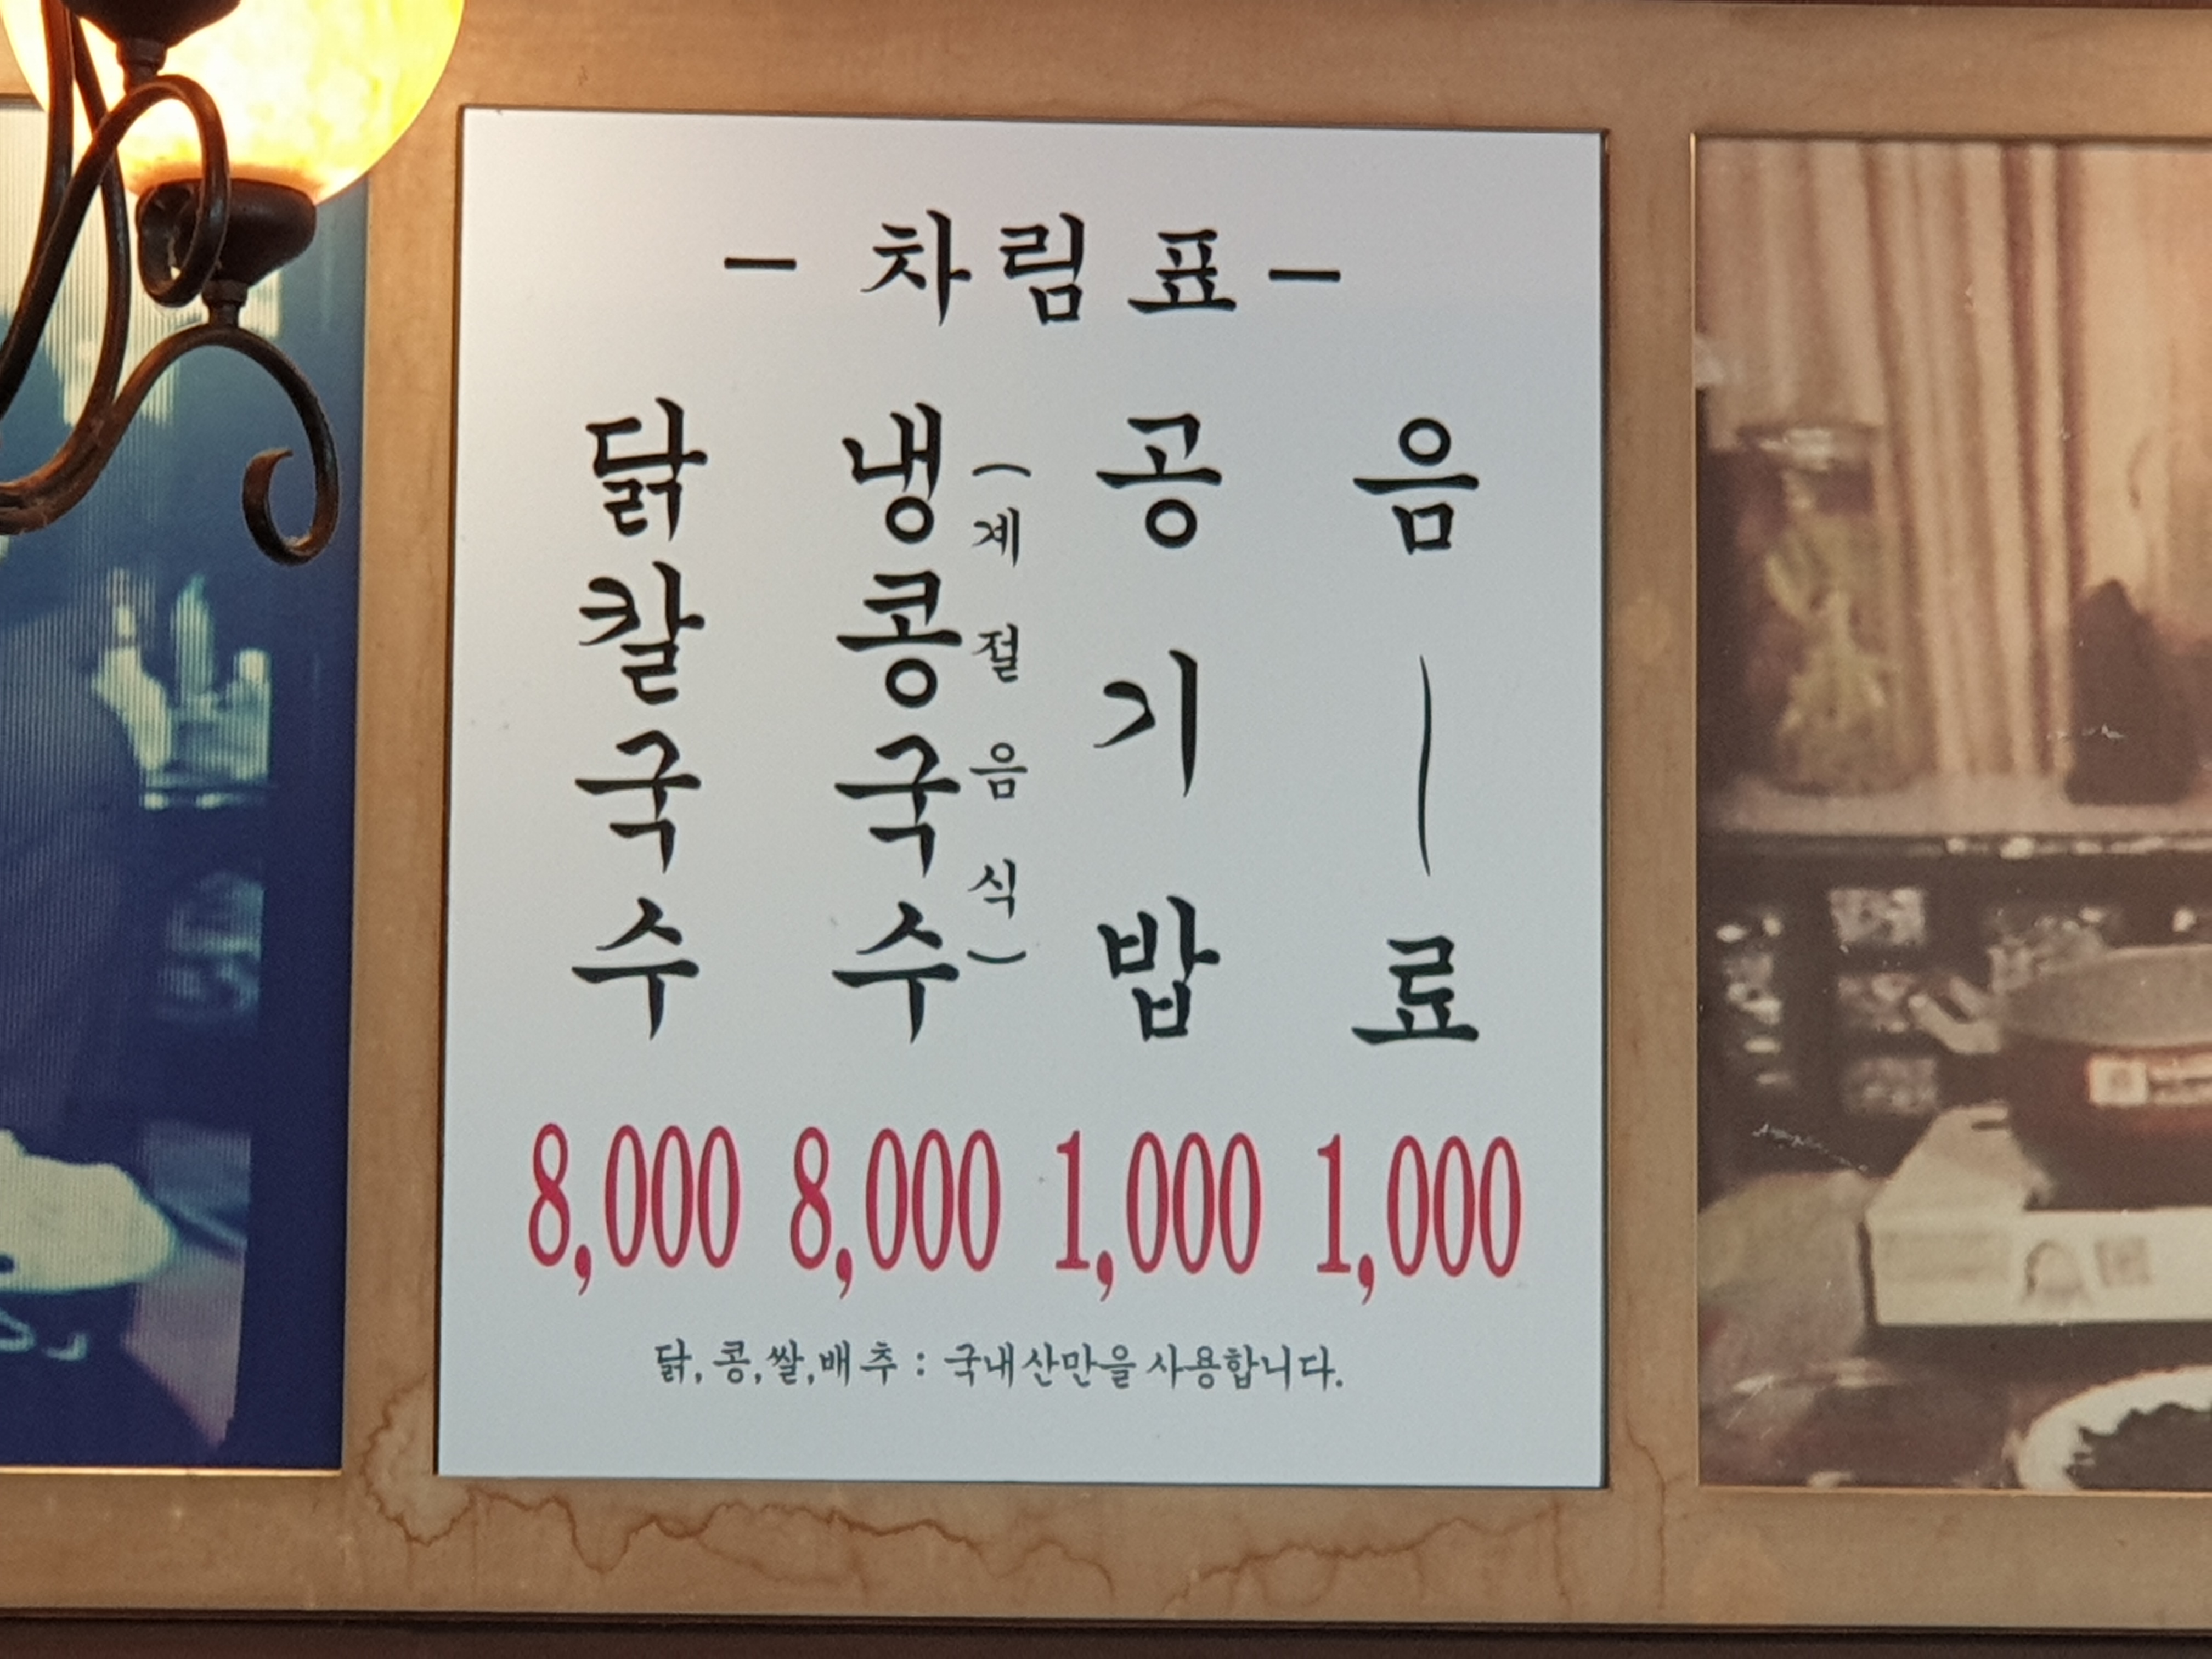 - 차림표 -
닭칼국수
냉콩국수
(계절음식)
공기밥
음 | 료
8,000 8,000 1,000 1,000
닭, 콩, 쌀, 배추 : 국내산만을 사용합니다.